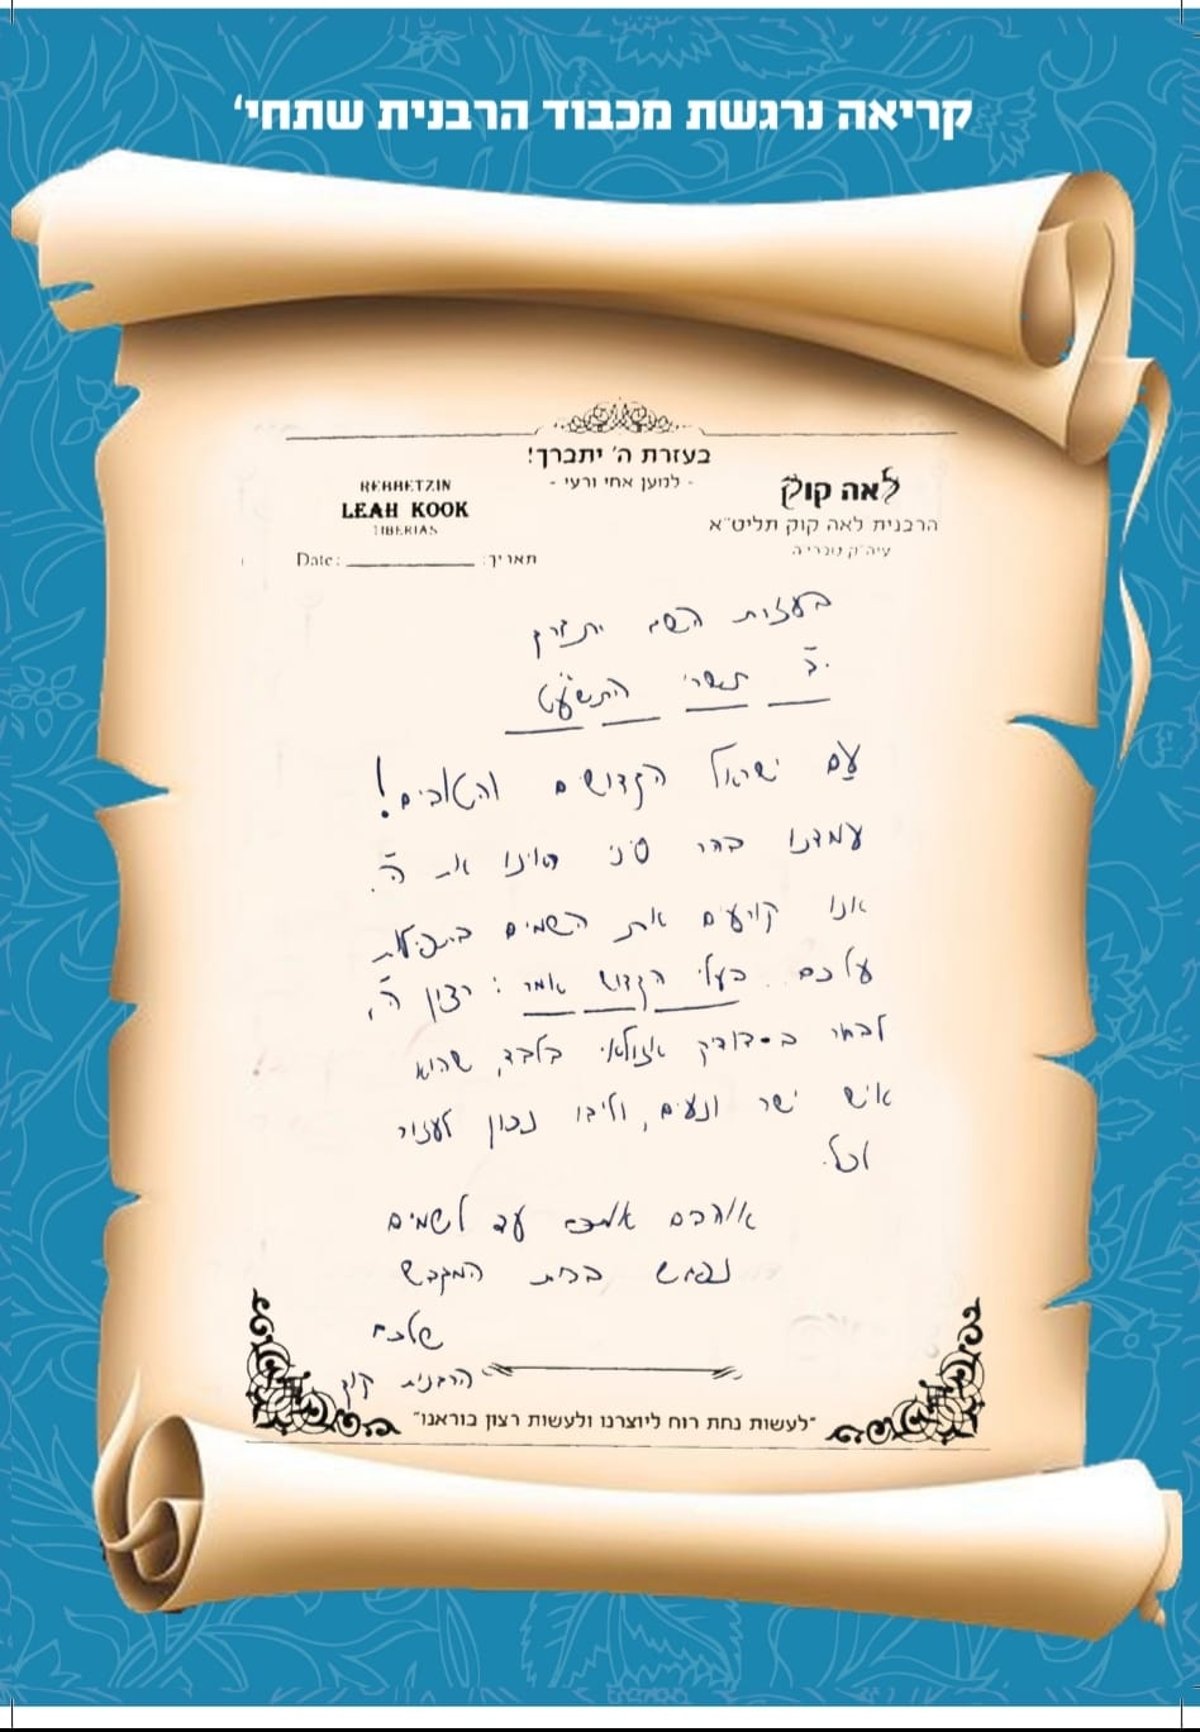 קריאה נרגשת מכבוד הרבנית שתחי'
בעזרת ה' יתברך!
- למען אחי ורעי -
REBBETZIN
LEAH KOOK
TIBERIAS
Date: תאריך:
לאה קוק
הרבנית לאה קוק תליט"א
עיה"ק טבריה
בעזרת השם יתברך
תשרי התשע"ט
עם ישראל הקדושים והטובים!
עמדנו בהר סיני ראינו את ה'.
אנו קורעים את השמים בתפילות
עליכם. בעלי הקדוש אמר: רצון ה',
לבחור ב אזולאי בלבד, שהוא
איש ישר ונעים, וליבו נכון לעזור
לכל.
אוהבים אתכם עד לשמים
נפגש בבית המקדש
שלכם
הרבנית קוק
"לעשות נחת רוח ליוצרנו ולעשות רצון בוראנו"